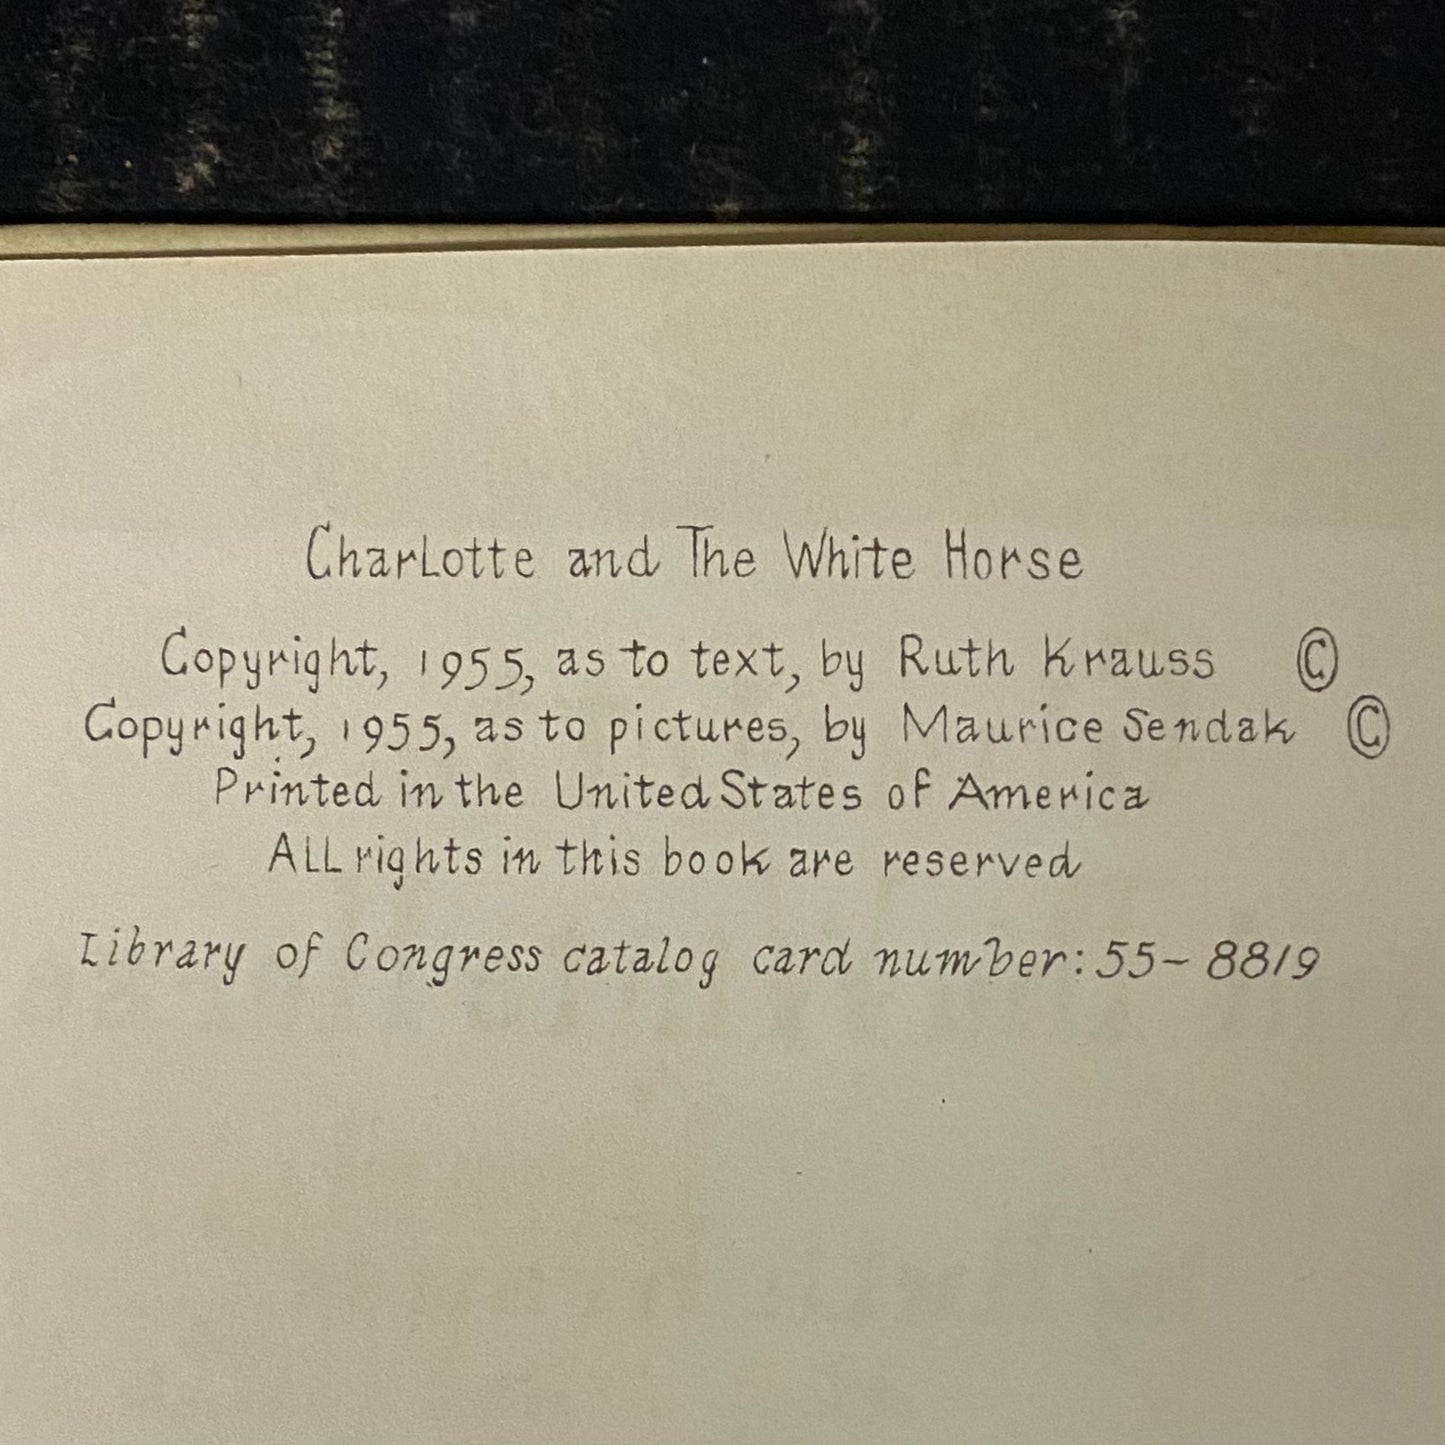 Charlotte and The White Horse
Copyright, 1955, as to text, by Ruth Krauss ©
Copyright, 1955, as to pictures, by Maurice Sendak ©
Printed in the United States of America
All rights in this book are reserved
Library of Congress catalog card number: 55-8819